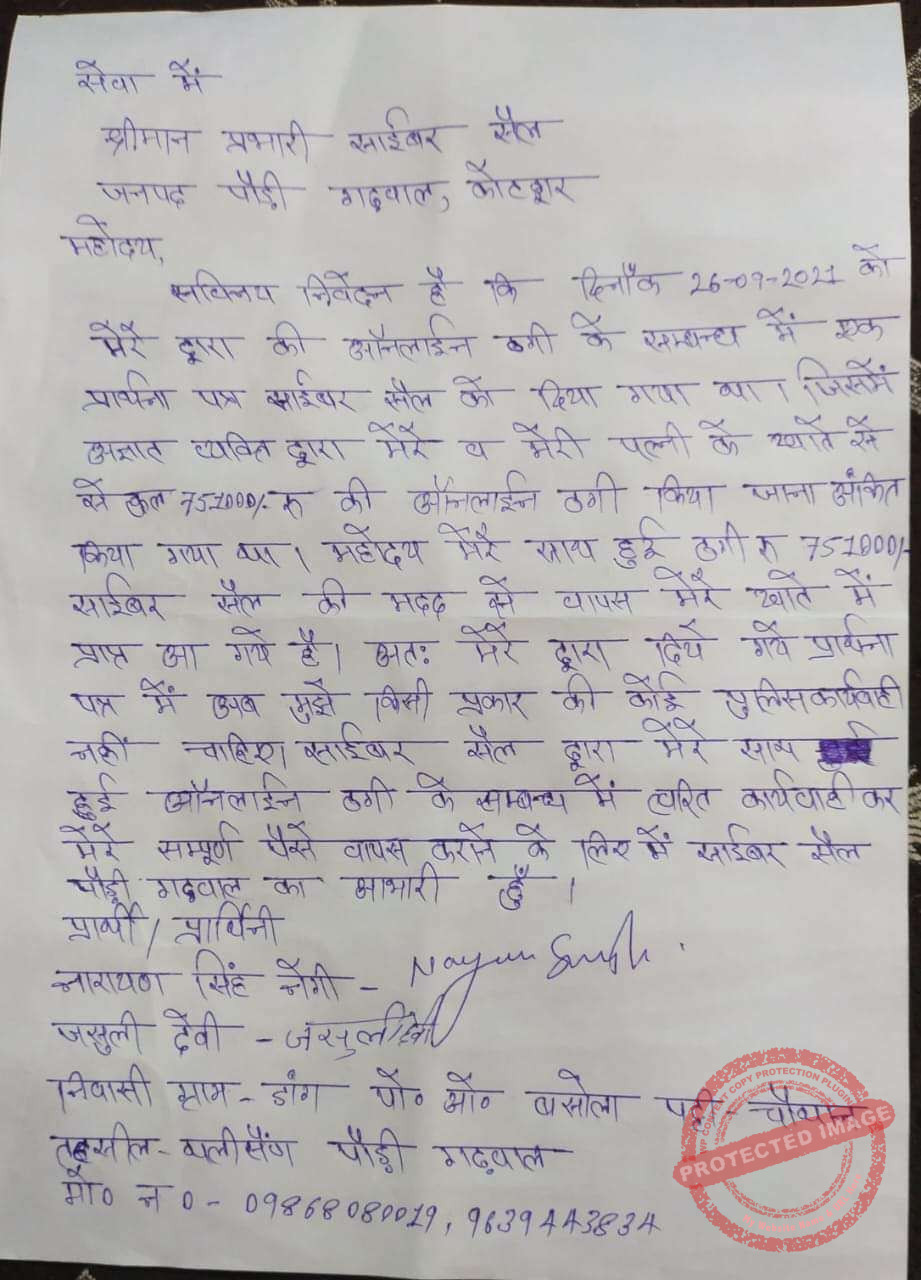 सेवा में
श्रीमान प्रभारी साईबर सैल
जनपद पौड़ी गढ़वाल, कोटद्वार
महोदय,
सविनय निवेदन है कि दिनाँक 26-09-2021 को
मेरे द्वारा की ऑनलाईन ठगी के सम्बन्ध में एक
प्रार्थना पत्र साईबर सैल को दिया गया था। जिसमें
अज्ञात व्यक्ति द्वारा मेरे व मेरी पत्नी के खाते से
से कुल 751000/- रु की ऑनलाईन ठगी किया जाना अंकित
किया गया था। महोदय मेरे साथ हुई ठगी रु 751000/-
साईबर सैल की मदद से वापस मेरे खाते में
प्राप्त आ गये है। अतः मेरे द्वारा दिये गये प्रार्थना
पत्र में अब मुझे किसी प्रकार की कोई पुलिस कार्यवाही
नहीं चाहिए। साईबर सैल द्वारा मेरे साथ
हुई ऑनलाईन ठगी के सम्बन्ध में त्वरित कार्यवाही कर
मेरे सम्पूर्ण पैसे वापस कराने के लिए में साईबर सैल
पौड़ी गढ़वाल का आभारी हूँ।
प्रार्थी / प्रार्थिनी
नारायण सिंह नेगी -
जसुली देवी - जसुली देवी
निवासी ग्राम - डांग पो० ओ० बसोला पट्टी - चौथान
तहसील - थलीसैंण पौड़ी गढ़वाल
मो० न० - 09868080019, 9639443834
PROTECTED IMAGE